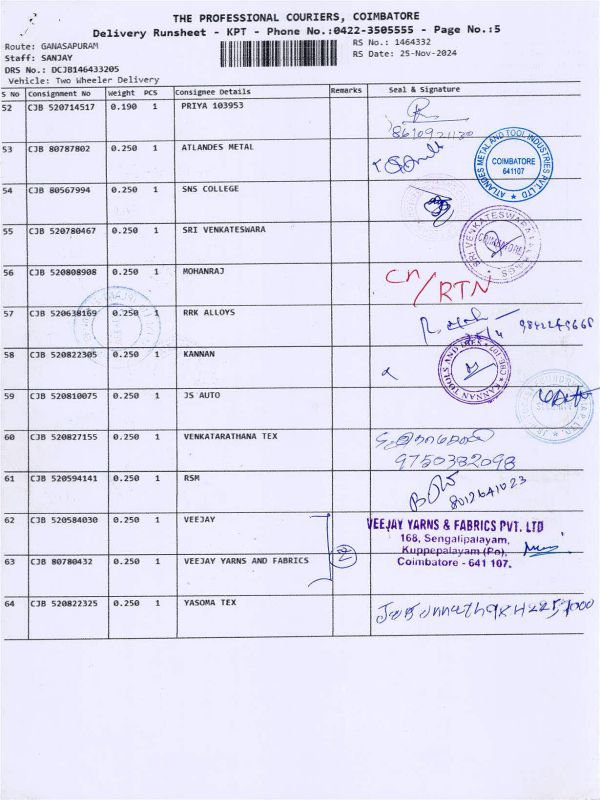 THE PROFESSIONAL COURIERS, COIMBATORE
Delivery Runsheet - KPT - Phone No.:0422-3505555 - Page No.:5
Route: GANASAPURAM
RS No.: 1464332
Staff: SANJAY
RS Date: 25-Nov-2024
DRS No.: DCJB146433205
Vehicle: Two Wheeler Delivery
S No Consignment No Weight PCS Consignee Details Remarks Seal & Signature
52 CJB 520714517 0.190 1 PRIYA 103953
53 CJB 80787802 0.250 1 ATLANDES METAL
ATLANDES METAL AND TOOL INDUSTRIES PVT. LTD
COIMBATORE
641107
54 CJB 80567994 0.250 1 SNS COLLEGE
55 CJB 520780467 0.250 1 SRI VENKATESWARA
SRI VENKATESWARA
COIMBATORE
56 CJB 520808908 0.250 1 MOHANRAJ
CN/RTN
57 CJB 520638169 0.250 1 RRK ALLOYS
58 CJB 520822305 0.250 1 KANNAN
KANNAN TOOLS AND DIES
59 CJB 520810075 0.250 1 JS AUTO
60 CJB 520827155 0.250 1 VENKATARATHANA TEX
9750382098
61 CJB 520594141 0.250 1 RSM
8012641023
62 CJB 520584030 0.250 1 VEEJAY
VEEJAY YARNS & FABRICS PVT. LTD
168, Sengalipalayam,
Kuppepalayam (Po),
Coimbatore - 641 107.
63 CJB 80780432 0.250 1 VEEJAY YARNS AND FABRICS
2
64 CJB 520822325 0.250 1 YASOMA TEX